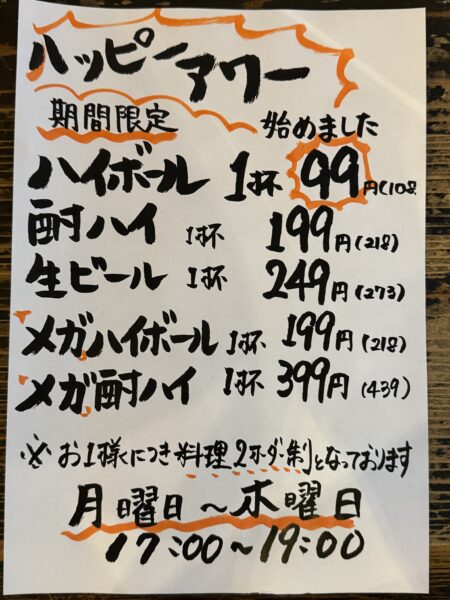 ハッピーアワー
期間限定 始めました
ハイボール 1杯 99円(108
酎ハイ 1杯 199円(218)
生ビール 1杯 249円(273)
メガハイボール 1杯 199円(218)
メガ酎ハイ 1杯 399円(439)
※お1様につき料理2オーダー制となっております
月曜日～木曜日
17:00～19:00